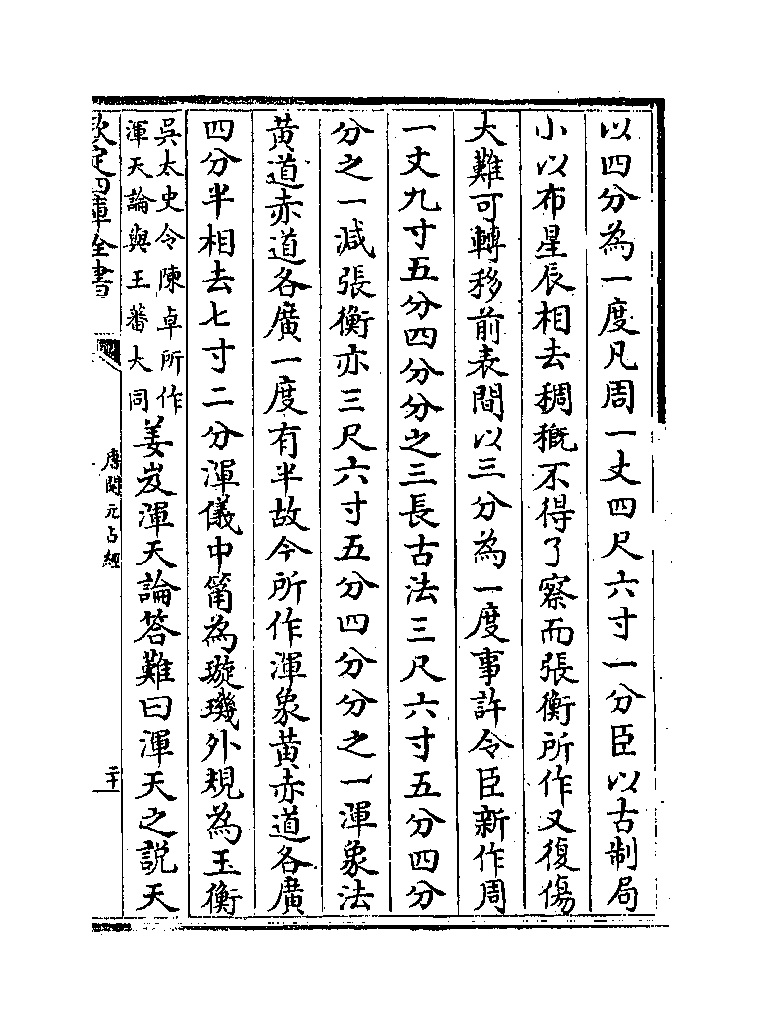 以四分為一度凡周一丈四尺六寸一分臣以古制局
小以布星辰相去稠穊不得了察而張衡所作又復傷
大難可轉移前表間以三分為一度事許令臣新作周
一丈九寸五分四分分之三長古法三尺六寸五分四分
分之一減張衡亦三尺六寸五分四分分之一渾象法
黄道赤道各廣一度有半故今所作渾象黄赤道各廣
四分半相去七寸二分渾儀中筩為璇璣外規為玉衡
吳太史令陳卓所作
渾天論與王蕃大同
姜岌渾天論答難曰渾天之說天
欽定四庫全書
唐開元占經
二十